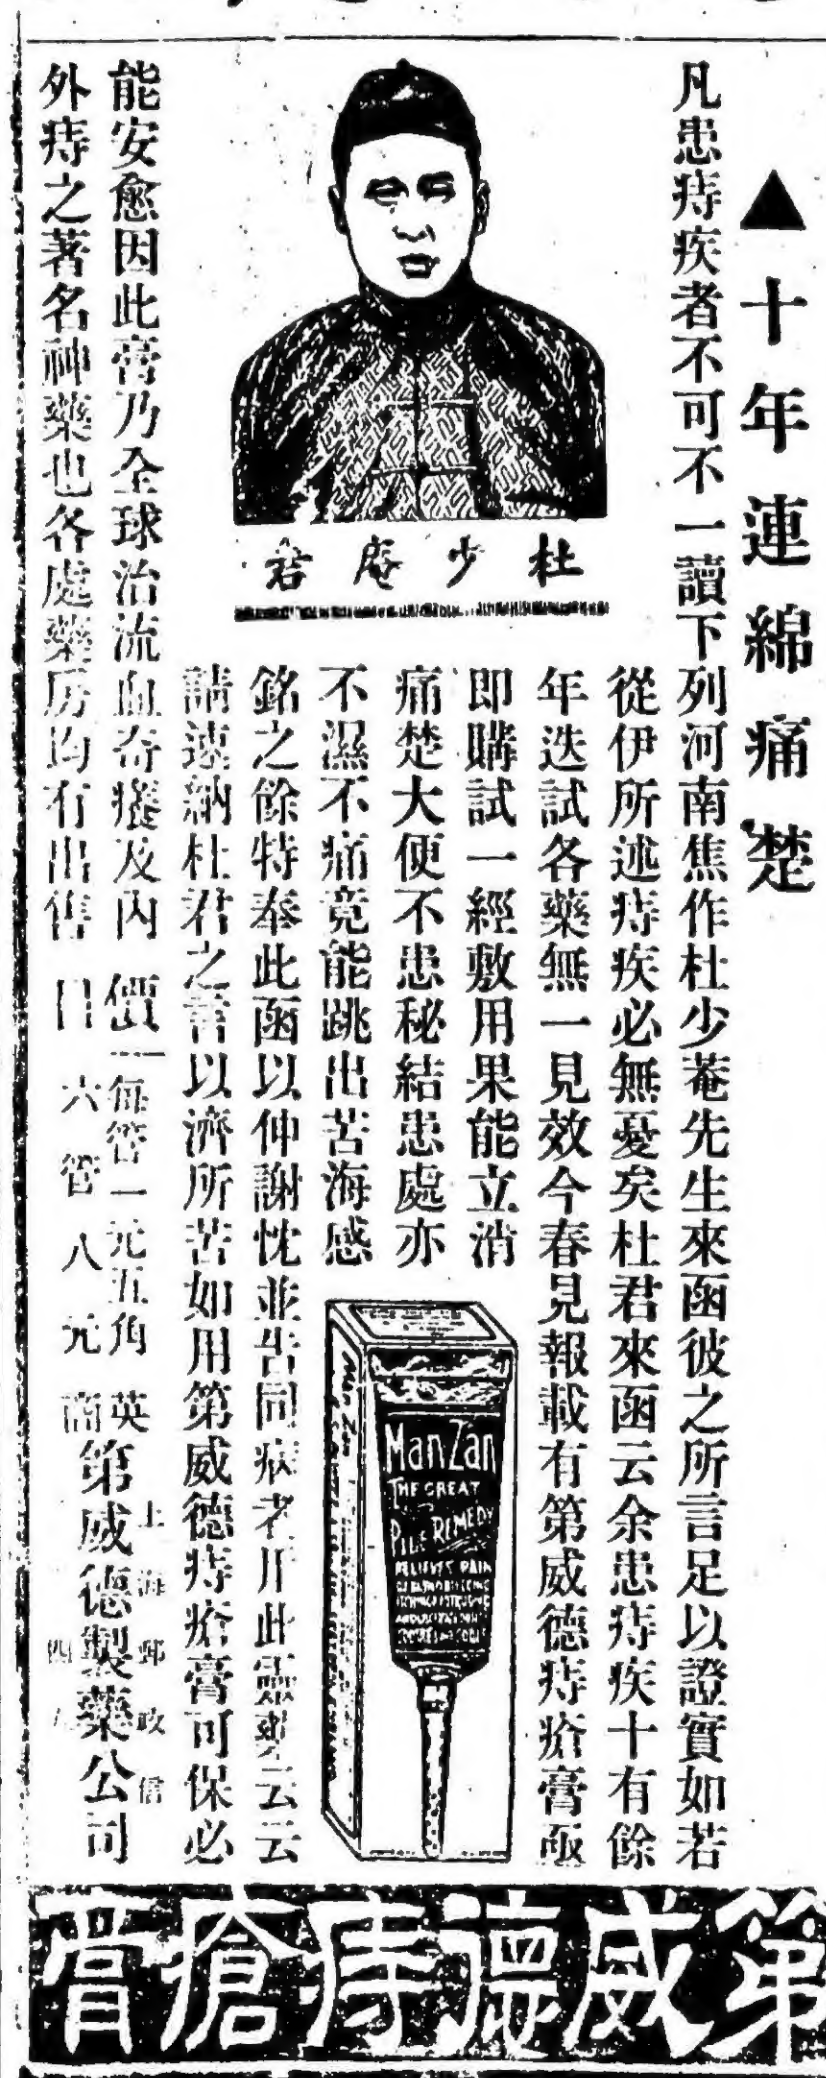 ▲十年連綿痛楚
凡患痔疾者不可不一讀下列河南焦作杜少菴先生來函彼之所言足以證實如若
從伊所述痔疾必無憂矣杜君來函云余患痔疾十有餘
年迭試各藥無一見效今春見報載有第威德痔瘡膏亟
即購試一經敷用果能立消
痛楚大便不患秘結患處亦
不濕不痛竟能跳出苦海感
銘之餘特奉此函以伸謝忱並告同病者用此靈藥云云
請速納杜君之言以濟所苦如用第威德痔瘡膏可保必
能安愈因此膏乃全球治流血奇癢及內
外痔之著名神藥也各處藥房均有出售
價目
每管一元五角
六管八元
英商
第威德製藥公司
上海郵政信
四
杜少庵君
Man Zan
THE GREAT
PILE REMEDY
RELIEVES PAIN
Man Zan
第威德痔瘡膏